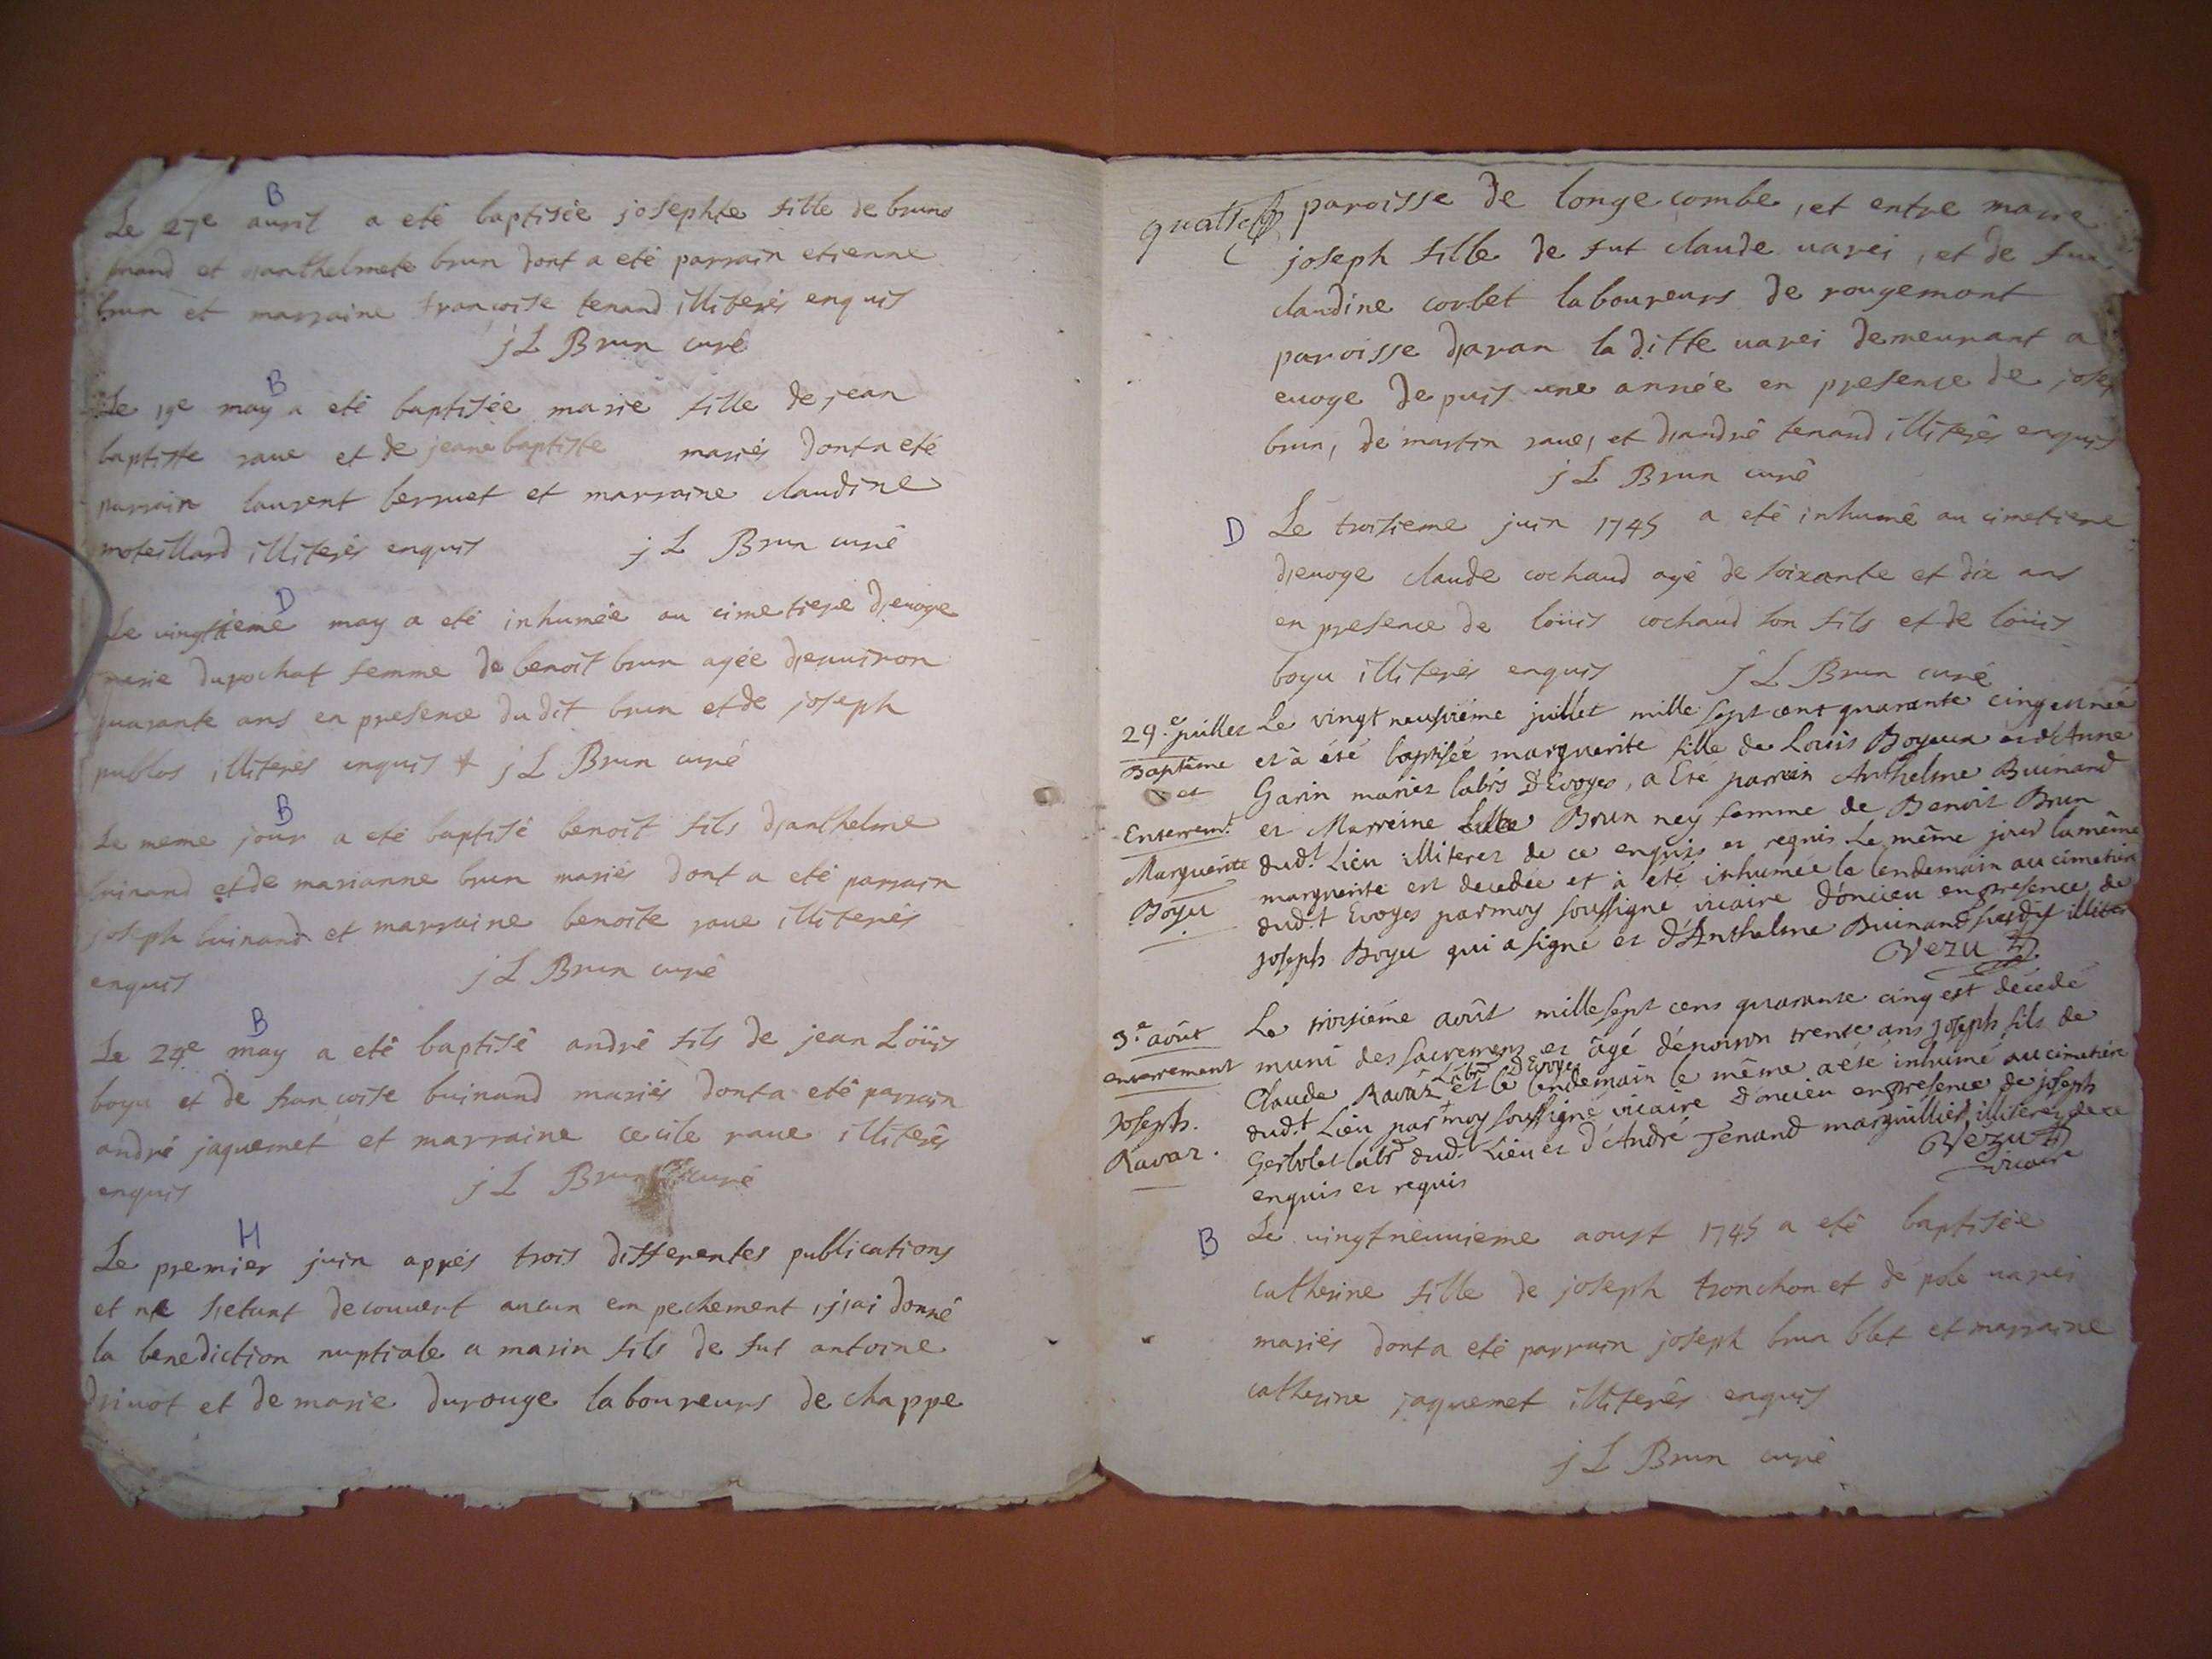 B
Le 27e auril a eté baptisée josephte fille de bruno
tenand et d'anthelmete brun dont a eté parrain etienne
brun et marraine françoise tenand illiterés enquis
j L Brun curé
B
Le 19e may a eté baptisée marie fille de jean
baptiste raue et de jeane baptiste mariés dont a eté
parrain laurent berruet et marraine claudine
moteillard illiterés enquis j L Brun curé
D
Le vingtieme may a eté inhumée au cimetiere d'euoge
marie durochat femme de benoit brun agée d'enuiron
quarante ans en presence dudit brun et de joseph
publos illiterés enquis j L Brun curé
B
Le meme jour a eté baptisé benoit fils d'anthelme
buinand et de marianne brun mariés dont a eté parrain
joseph buinand et marraine benoite raue illiterés
enquis j L Brun curé
B
Le 24e may a eté baptisé andré fils de jean Loüis
boyu et de françoise buinand mariés dont a eté parrain
andré jaquemet et marraine cecile raue illiterés
enquis j L Brun curé
H
Le premier juin apprés trois differentes publications
et ne s'etant decouuert aucun empechement , j'ai donné
la benediction nuptiale a marin fils de fut antoine
driuot et de marie durouge laboureurs de chappe
quatre paroisse de longecombe , et entre marie
joseph fille de fut claude uarei , et de fue
claudine corbet laboureurs de rougemont
paroisse d'aran la ditte uarei demeurant a
euoge depuis une année en presence de josep
brun, de martin raue, et d'andré tenand illiterés enquis
j L Brun curé
D Le troisieme juin 1745 a eté inhumé au cimetiere
d'euoge claude cochaud agé de soixante et dix ans
en presence de loüis cochaud son fils et de loüis
boyu illiterés enquis j L Brun curé
29.e juillet Le vingt neufvième juillet mille sept cent quarante cinq est née
Baptême et à été baptisée marguerite fille de Louis Boyeux et d'Anne
et Garin mariez labrs d'Evoges, a Eté parrein Anthelme Buinand
Enterremt. et Marreine Brun ney femme de Benoit Brun
Marguerite dud.t Lieu illiterez de ce enquis et requis Le même jour la même
Boyu marguerite est decedée et à eté inhumée le lendemain au cimetiere
dud.t Evoges par moy soussigné vicaire d'oncieu en presence de
joseph Boyu qui a signé et d'Anthelme Buinand susdis illiter
Vezu
3.e août Le troisième août mille sept cens quarante cinq est décédé
enterrement muni des sacremens et âgé d'environ trente ans joseph fils de
Labr d'Evoges
Claude Ravaz et le lendemain le même a eté inhumé au cimetière
Joseph. dud.t Lieu par moy soussigné vicaire d'oncieu en presence de joseph
Ravaz. Gerbolet labr dud.t Lieu et d'André Tenand marguillier illiterez de ce
enquis et requis Vezu
vicaire
B Le vingtneuuieme aoust 1745 a eté baptisée
catherine fille de joseph tronchon et de pole uarei
mariés dont a eté parrain joseph brun blet et marraine
catherine jaquemet illiterés enquis
j L Brun curé